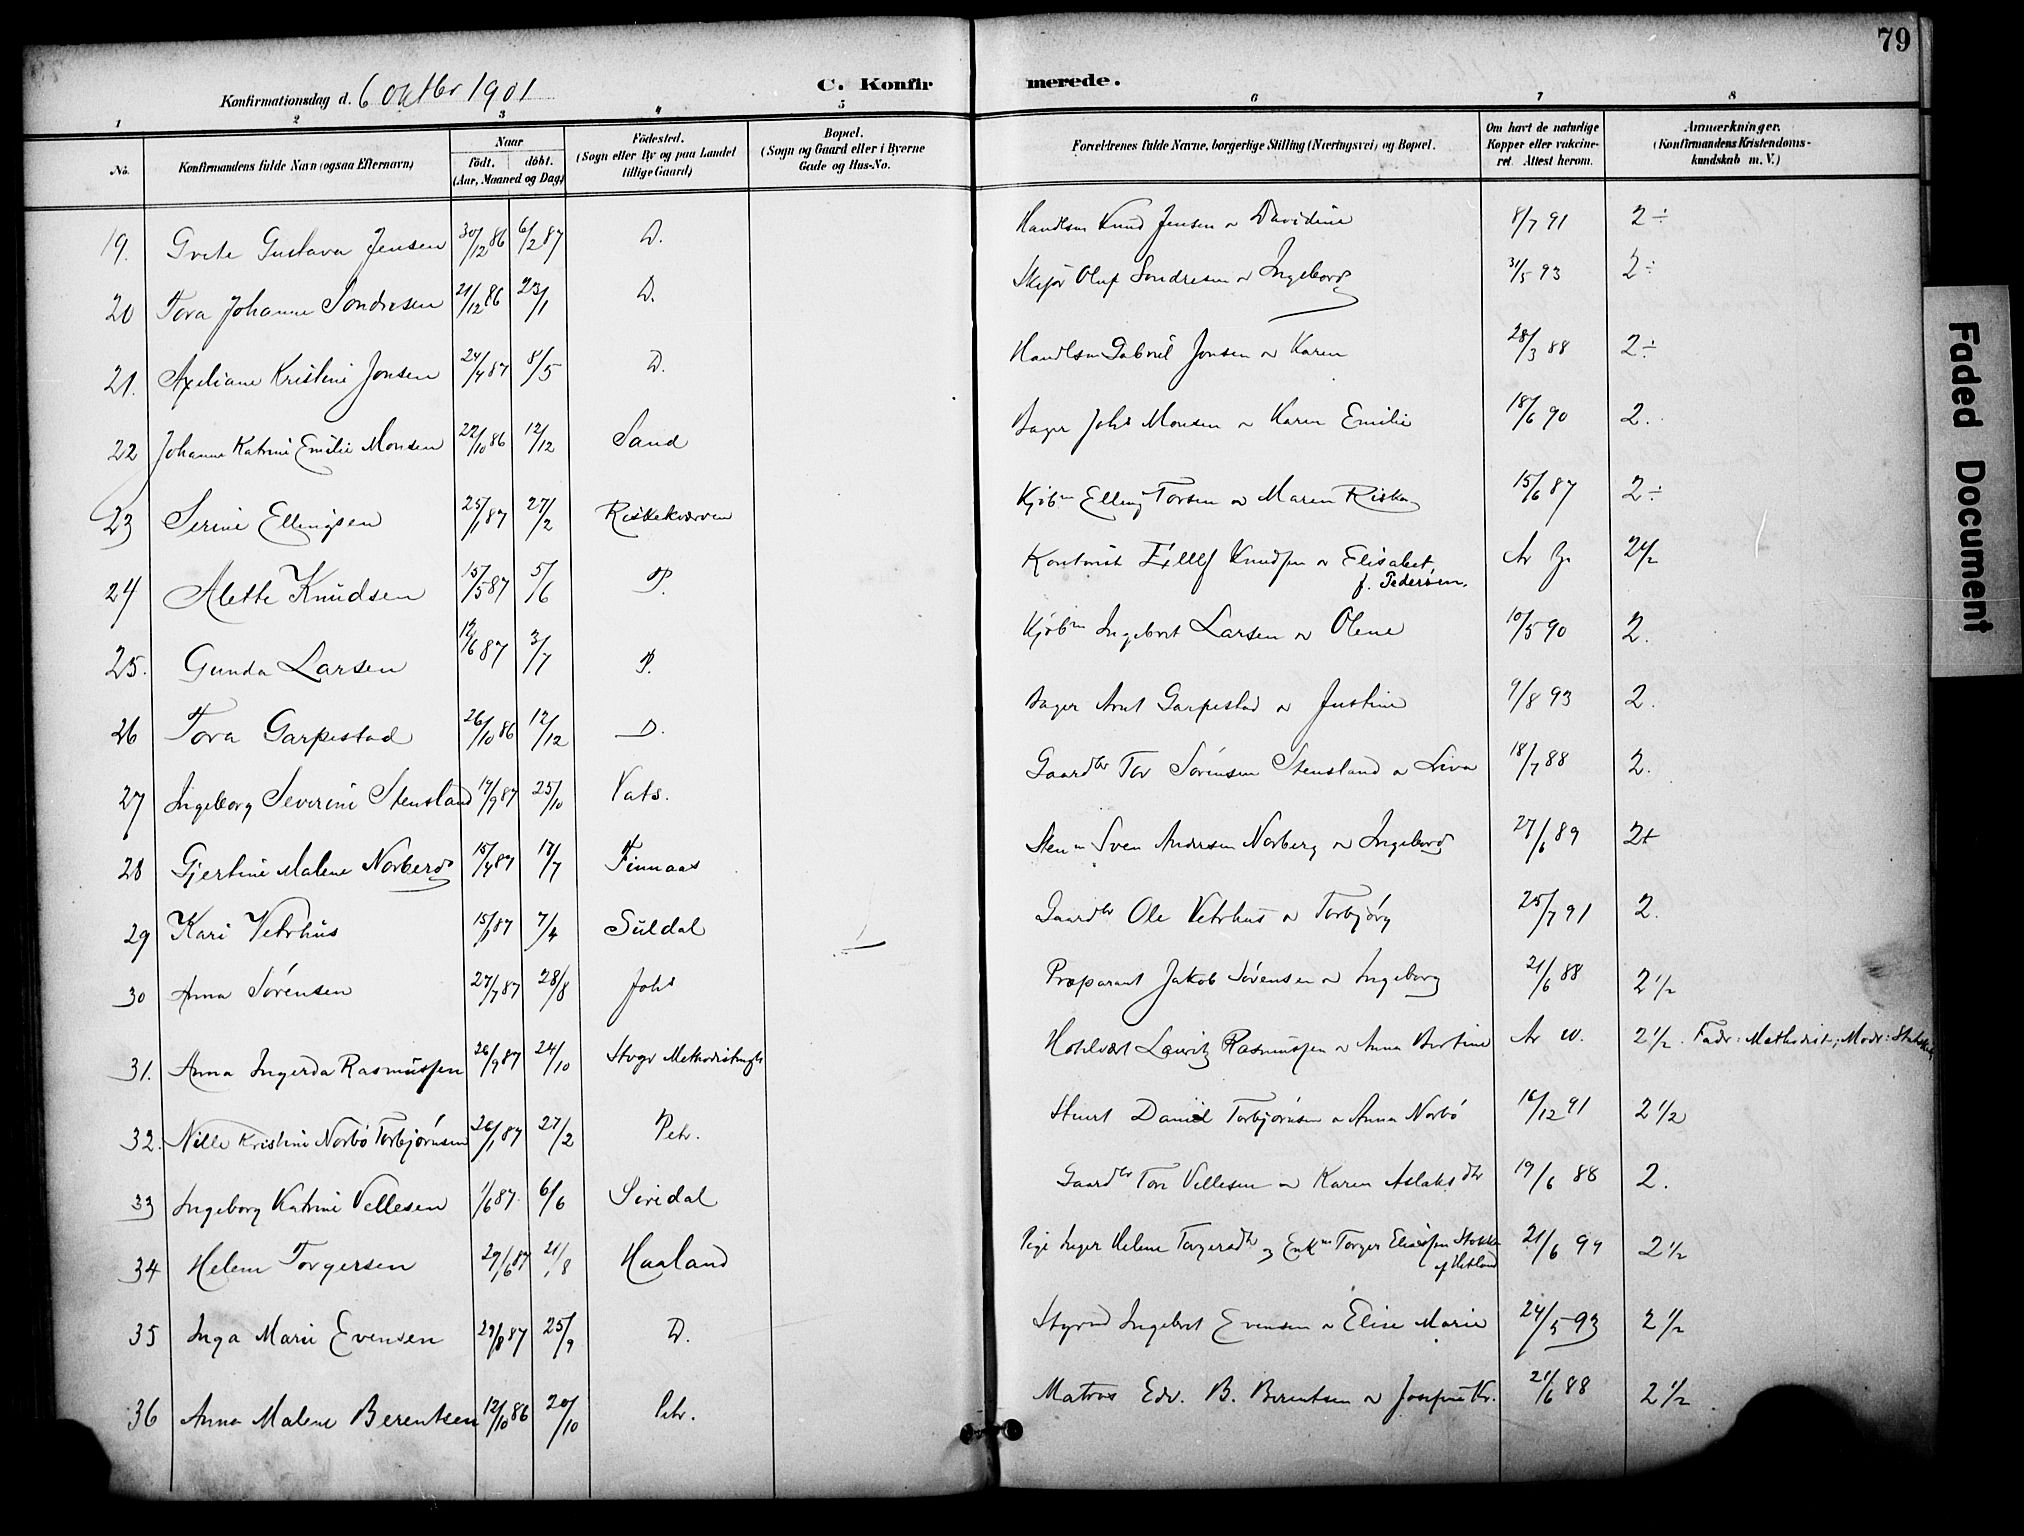 79
Konfirmationsdag d. 6 Oktbr 1901
C. Konfirmerede.
1 2 3 4 5 6 7 8
No. Konfirmandens fulde Navn (ogsaa Efternavn) Naar födt. döbt. (Aar, Maaned og Dag) Födested. (Sogn eller By og paa Landet tillige Gaard) Bopæl. (Sogn og Gaard eller i Byerne Gade og Hus-No. Forældrenes fulde Navne, borgerlige Stilling (Næringsvei) og Bopæl. Om havt de naturlige Kopper eller vakcineret. Attest herom. Anmærkninger. (Konfirmandens Kristendomskundskab m. V.)
19. Grete Gustava Jensen 30/12 86 6/2 87 D. Handlsm Knud Jensen o Davidine 8/7 91 2÷
20 Tora Johanne Sondresen 21/12 86 23/1 D. Skipr Oluf Sondresen o Ingeborg 31/5 93 2÷
21. Axeliane Kristine Jonsen 24/4 87 8/5 D. Handlsm Gabriel Jonsen o Karen 28/3 88 2÷
22 Johanne Katrine Emilie Monsen 22/10 86 12/12 Sand Bager Johs Monsen o Karen Emilie 18/6 90 2.
23 Serine Ellingsen 25/1 87 27/2 Riskekværven Kjøbm Elling Torsen o Maren Riska 15/6 87 2÷
24 Alette Knudsen 15/5 87 5/6 P. Kontorist Knudsen o Elisabet f. Pedersen. Ar 2½
25. Gunda Larsen 12/6 87 3/7 P. Kjøbm Ingebret Larsen o Olene 10/5 90 2.
26 Tora Garpestad 26/10 86 12/12 D. Bager Arnt Garpestad o Justine 9/8 93 2.
27 Ingeborg Severine Stensland 17/9 87 25/10 Vats. Gaardbr Tor Sörensen Stensland o Liva 18/7 88 2.
28 Gjertine Malene Norberg 15/4 87 17/7 Finnaas Sten Sven Andresen Norberg o Ingeborg 27/6 89 2+
29 Kari Vetrhus 87 7/4 Suldal Gaardbr Ole Vetrhus o Torbjörg 25/7 91 2.
30 Anna Sörensen 27/7 87 28/8 Johs Præparant Jakob Sörensen o Ingeborg 21/6 88 2½
31. Anna Ingerda Rasmussen 26/9 87 24/10 Stvgr Methodistmgh Hotelvært Lauritz Rasmussen o Anna Bertine Ar W. 2½. Fadr: Methodist; Modr:
32. Nille Kristine Norbö Torbjörnsen 26/1 87 27/2 Petr. Stuert Daniel Torbjörnsen o Anna Norbö 16/12 91 2½
33 Ingeborg Katrine Vellesen 1/6 87 6/6 Siredal Gaardbr Tore Vellesen o Karen Aslaksdtr 19/6 88 2.
34 Helene Torgersen 29/6 87 21/8 Haaland Pige Inger Helene Torgersdtr og Enkm Torger Eliassen Stokka af Hetland 21/6 99 2½
35 Inga Marie Evensen 29/8 87 25/9 D. Styrmd Ingebret Evensen o Elise Marie 24/5 93 2½
36 Anna Malene Berentsen 12/10 86 20/10 Petr. Matros Edv. B. Berentsen o Josefine Kr. 21/6 88 2½
Faded Document